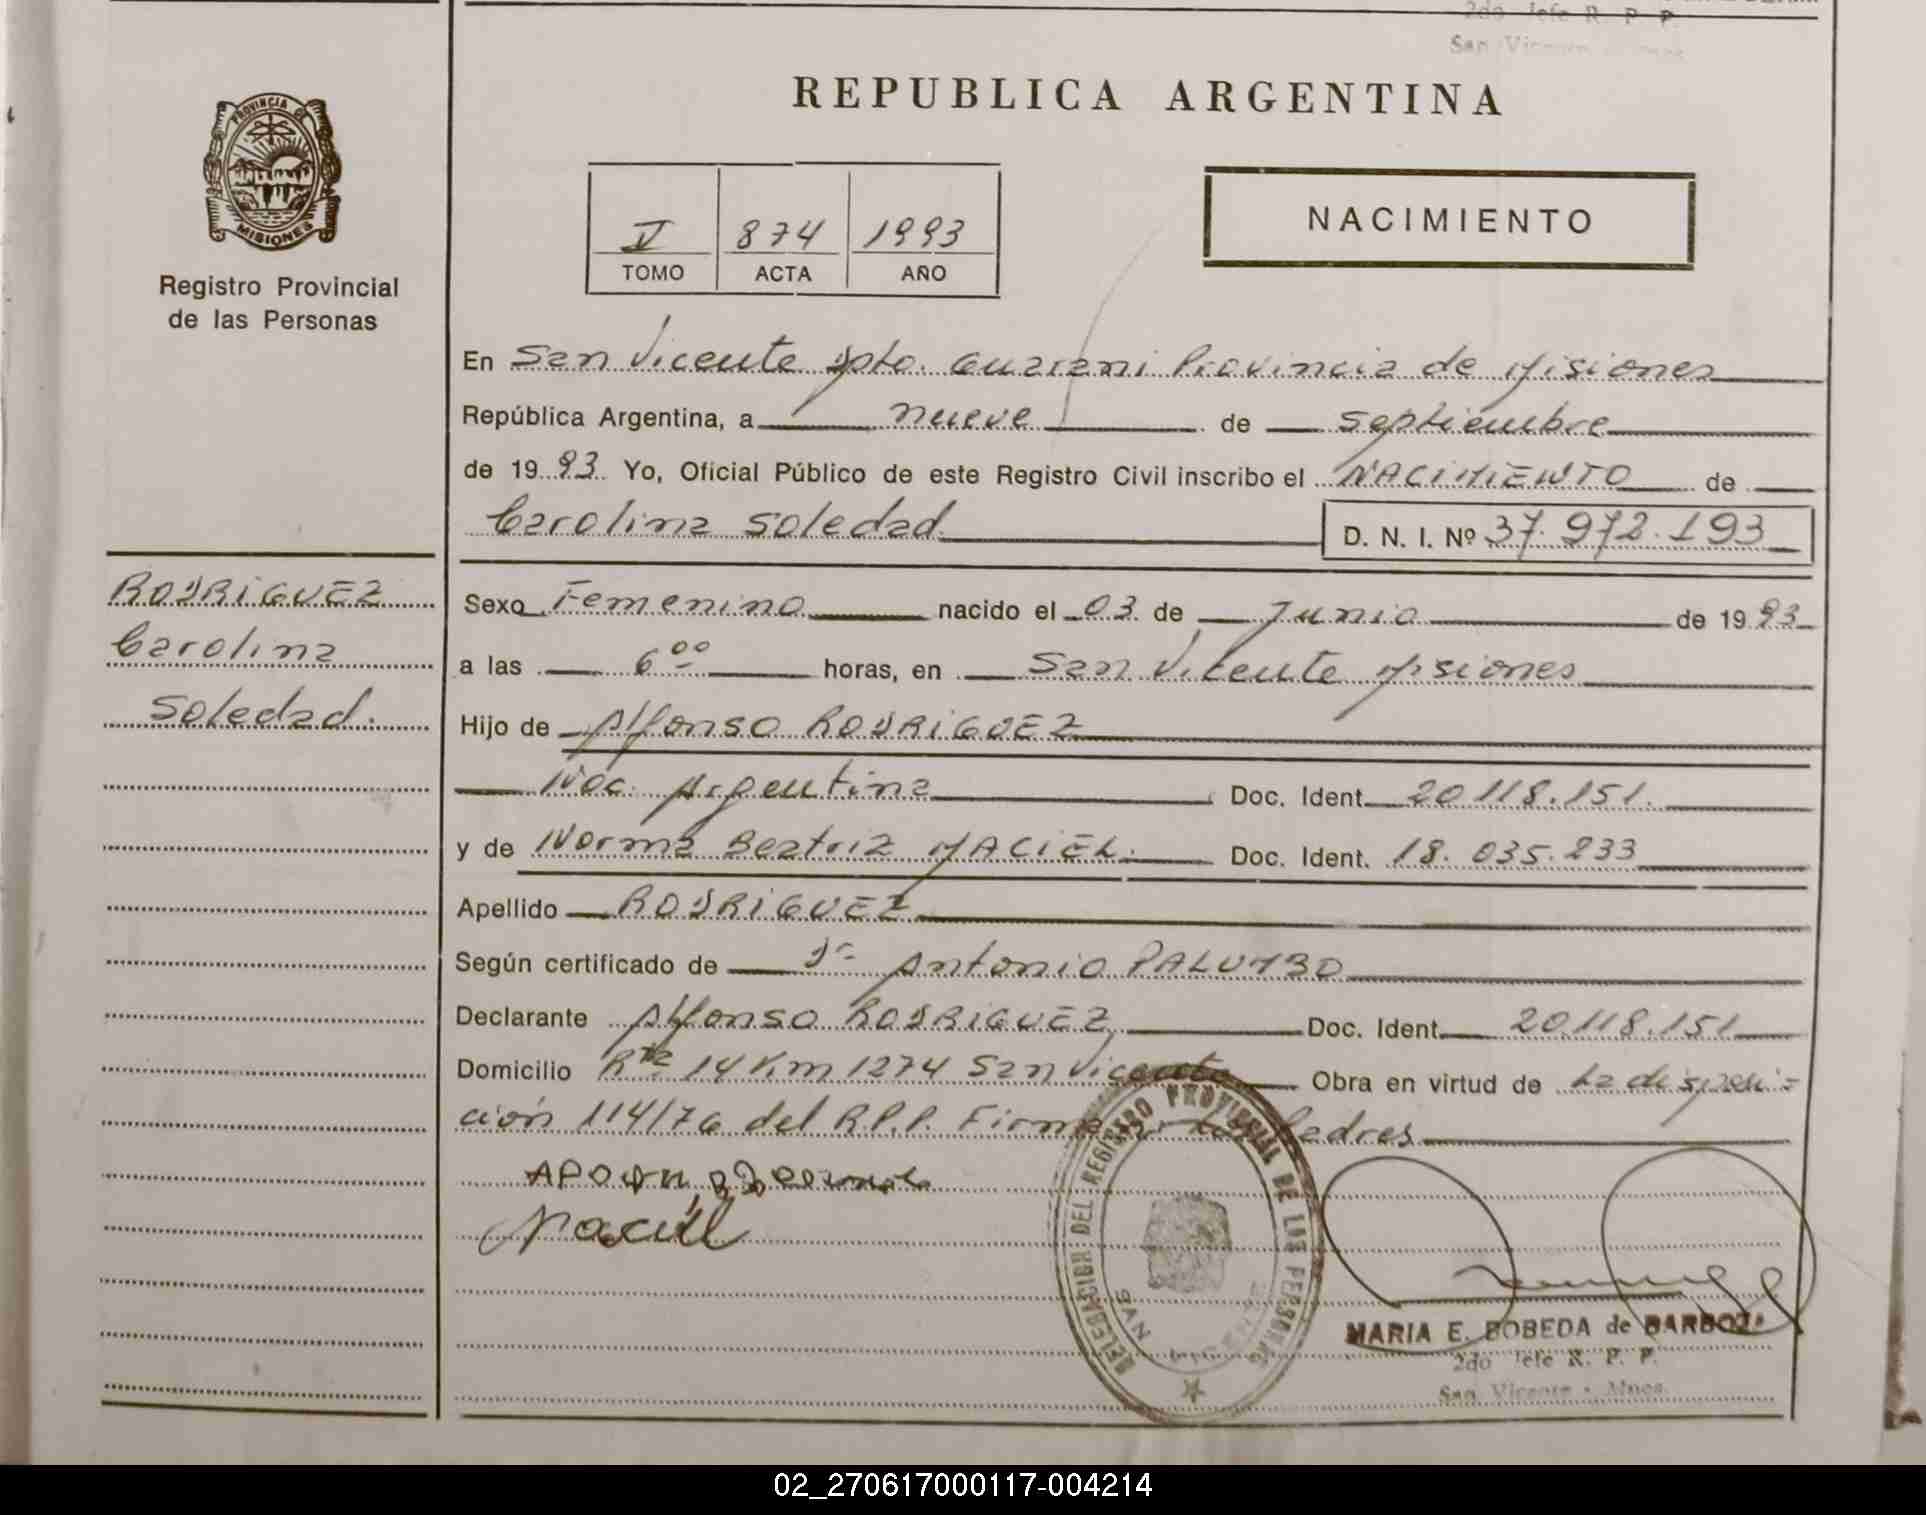 2do Jefe R. P. P.
San Vicente - Mnes.
REPUBLICA ARGENTINA
PROVINCIA DE
MISIONES
Registro Provincial
de las Personas
V 874 1993
TOMO ACTA AÑO
NACIMIENTO
En San Vicente Dpto. Guarani Provincia de Misiones
República Argentina, a nueve de septiembre
de 1993 Yo, Oficial Público de este Registro Civil inscribo el NACIMIENTO de
Carolina Soledad D. N. I. Nº 37.972.193
RODRIGUEZ
Carolina
Soledad.
Sexo Femenino nacido el 03 de Junio de 1993
a las 6 00 horas, en San Vicente Misiones
Hijo de Alfonso RODRIGUEZ
Nac. Argentina Doc. Ident. 20.118.151.
y de Norma Beatriz MACIEL. Doc. Ident. 18.035.233
Apellido RODRIGUEZ
Según certificado de Dr Antonio PALUMBO
Declarante Alfonso RODRIGUEZ Doc. Ident. 20.118.151
Domicilio Rta 14 Km 1274 San Vicente Obra en virtud de La disposi=
ción 114/76 del R.P.P. Firman los Padres
Maciel
DELEGACION DEL REGISTRO PROVINCIAL DE LAS PERSONAS
SAN VICENTE
MARIA E. BOBEDA de BARBOZA
2do Jefe R. P. P.
San Vicente - Mnes.
02_270617000117-004214